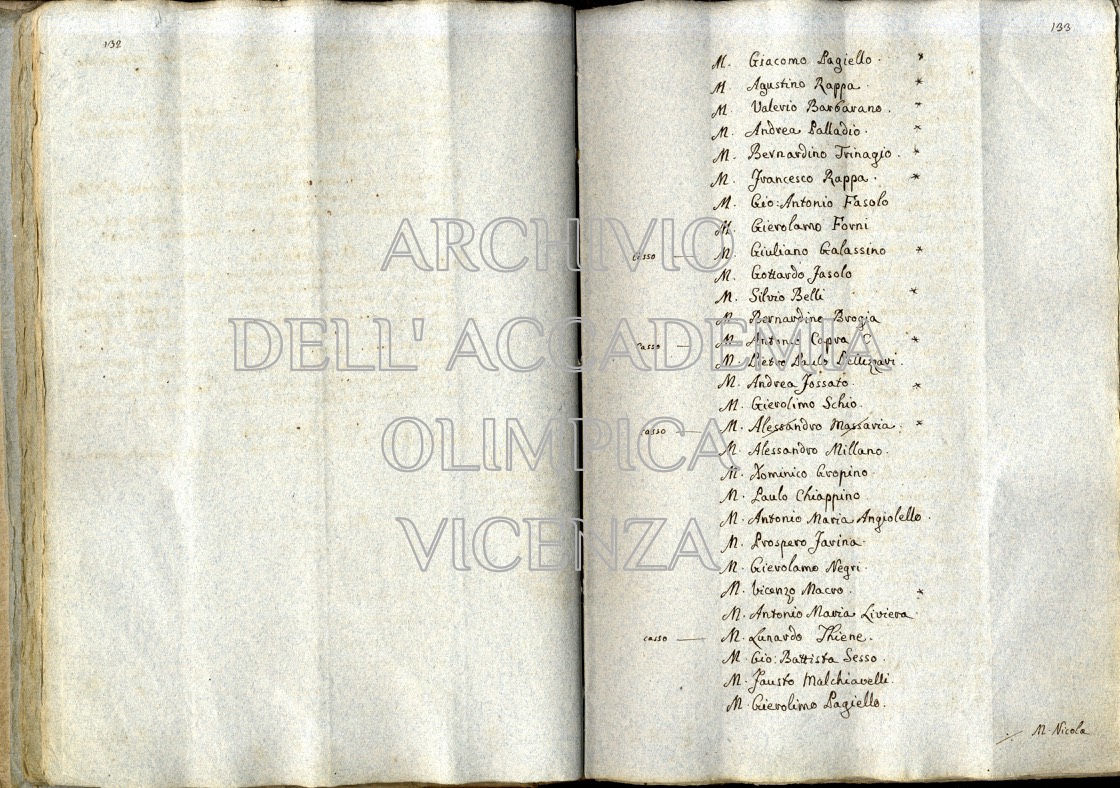 132
133
M. Giacomo Pagiello. *
M. Agustino Rappa. *
M. Valerio Barbarano. *
M. Andrea Palladio. *
M. Bernardino Trinagio. *
M. Francesco Rappa. *
M. Gio: Antonio Fasolo
M. Gierolamo Forni
Casso — M. Giuliano Galassino *
M. Gottardo Fasolo
M. Silvio Belli *
M. Bernardino Brogia
Casso — M. Antonio Capra *
M. Pietro Paulo Pellizzari.
M. Andrea Fossato. *
M. Gierolimo Schio.
Casso — M. Alessandro Massaria. *
M. Alessandro Millano.
M. Dominico Gropino.
M. Paulo Chiappino
M. Antonio Maria Angiolello.
M. Prospero Farina.
M. Gierolamo Negri.
M. Vicenzo Macro. *
M. Antonio Maria Liviera
casso — M. Lunardo Thiene.
M. Gio: Battista Sesso.
M. Fausto Malchiavelli.
M. Gierolimo Pagiello.
M. Nicola
ARCHIVIO
DELL' ACCADEMIA
OLIMPICA
VICENZA